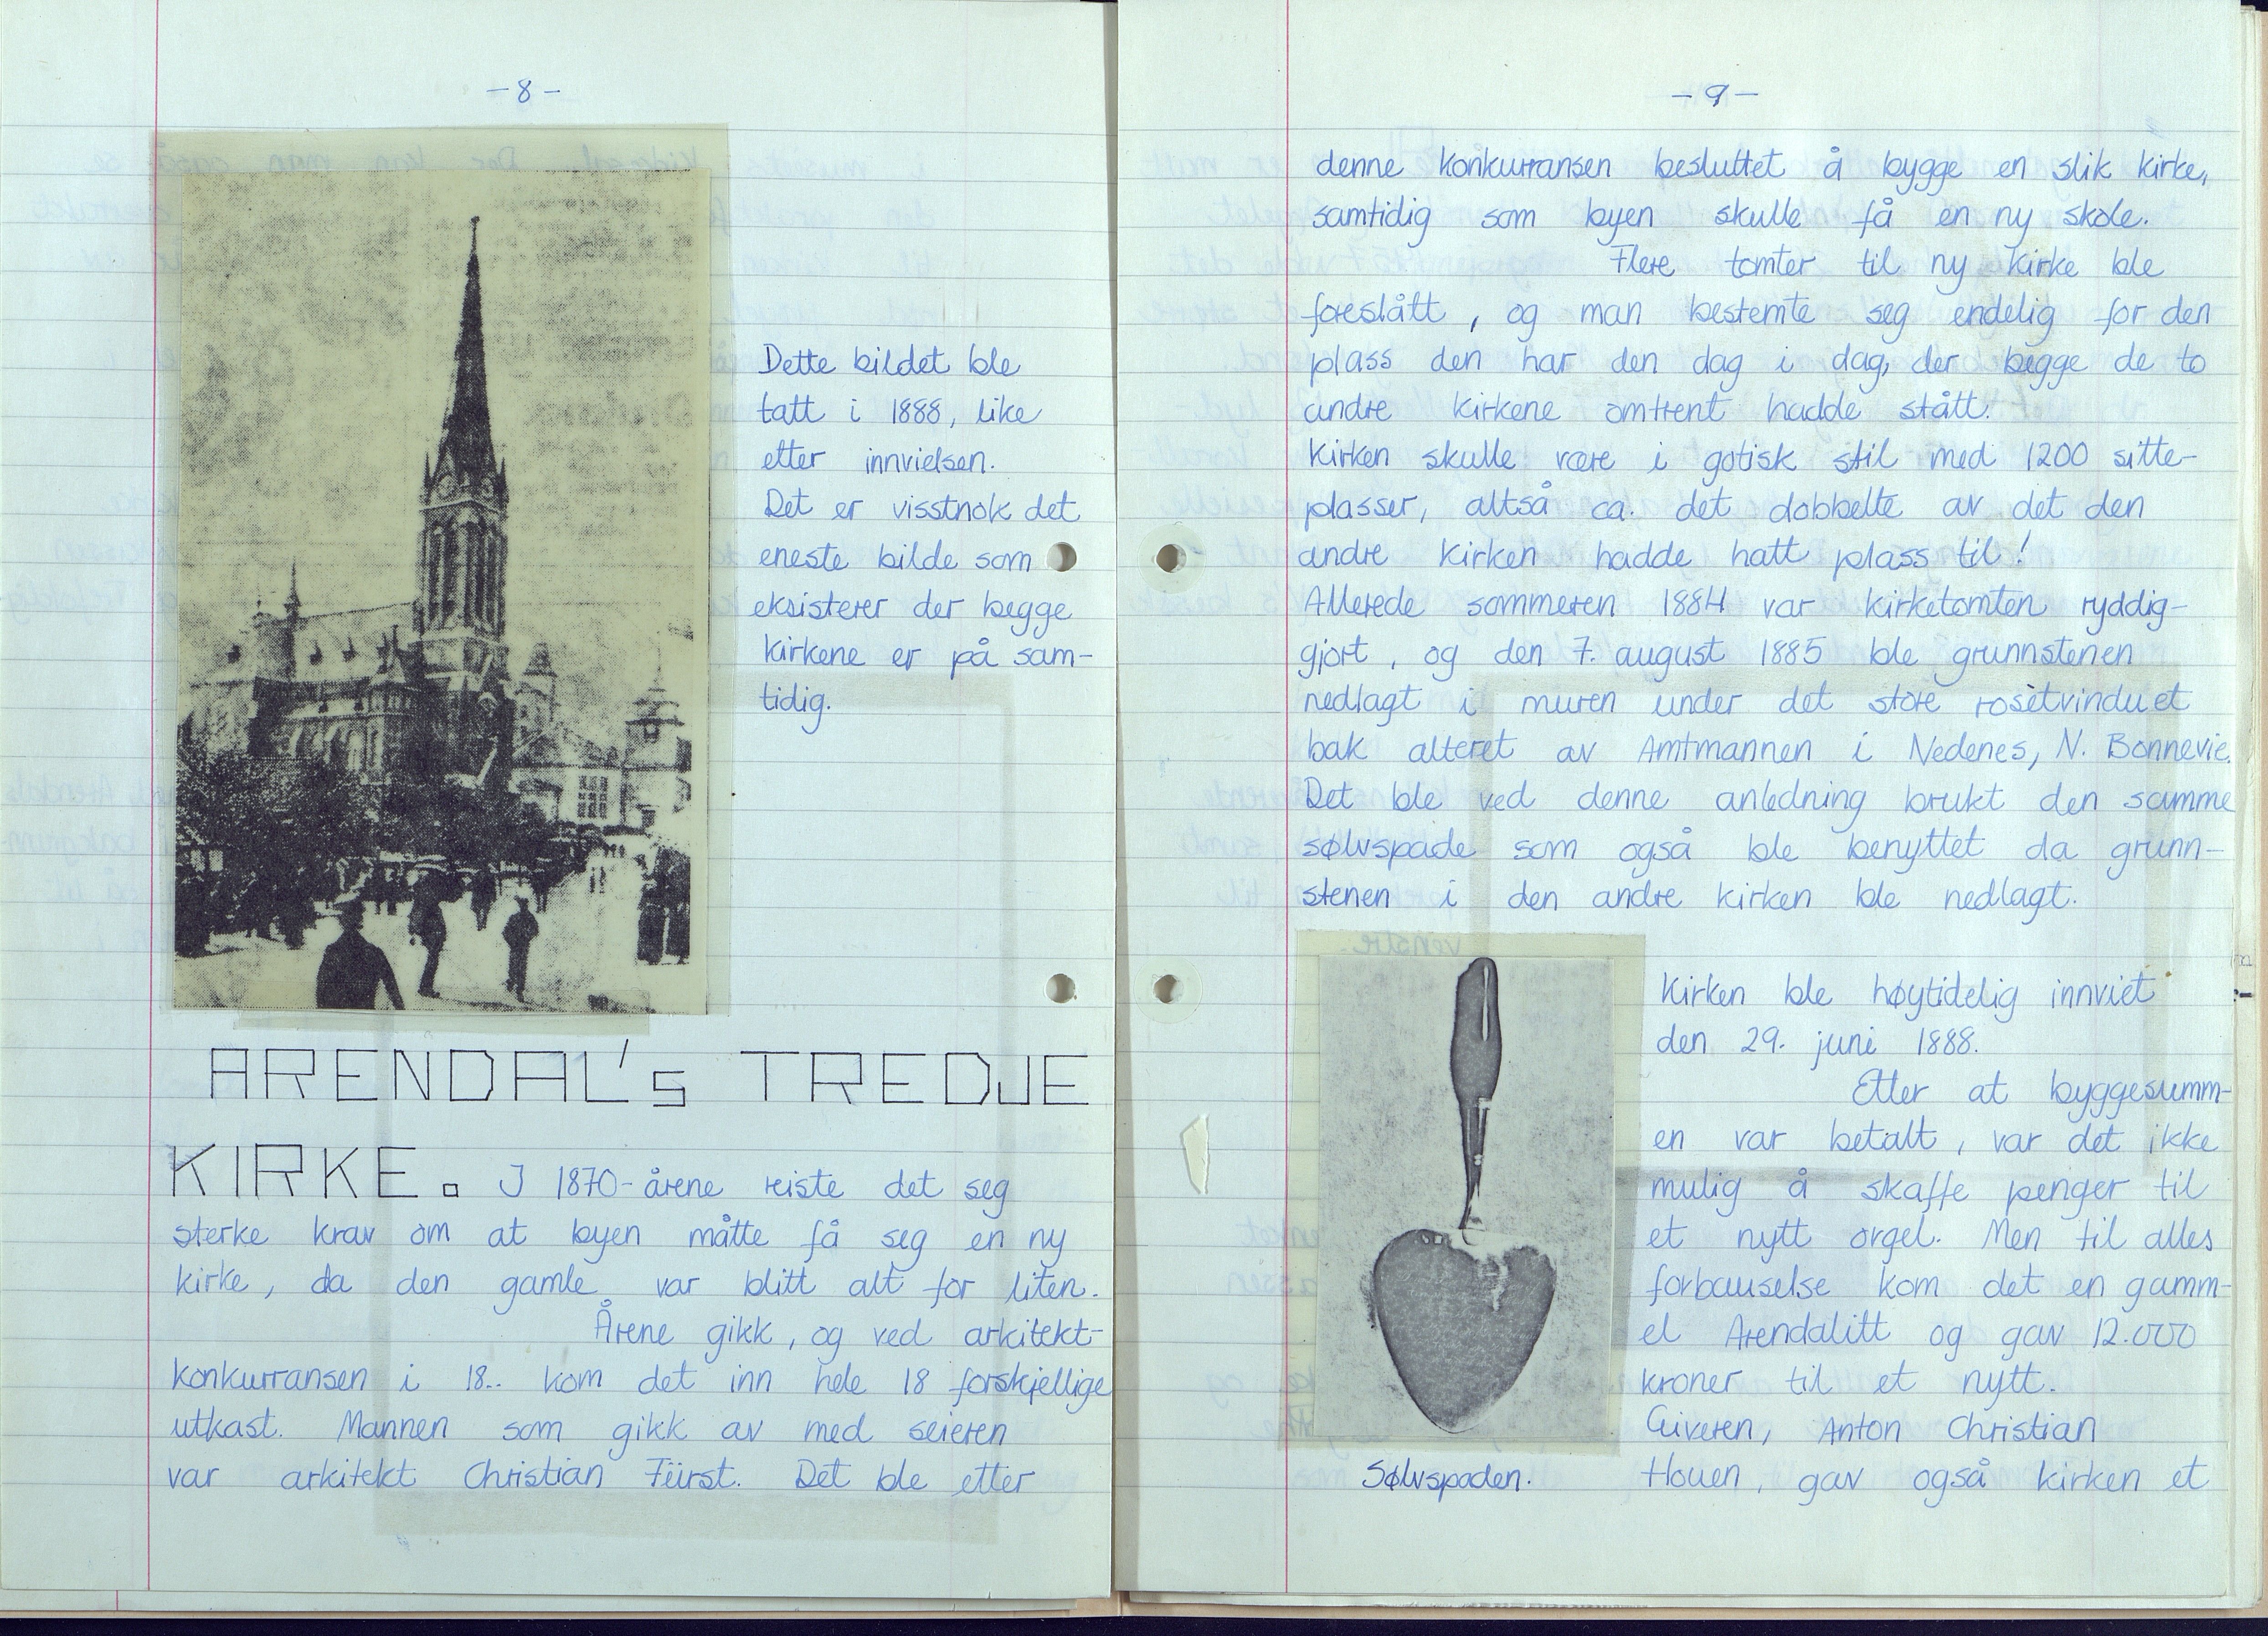 -8-
Dette bildet ble
tatt i 1888, like
etter innvielsen.
Det er visstnok det
eneste bilde som
eksisterer der begge
kirkene er på sam-
tidig.
ARENDAL's TREDJE
KIRKE. I 1870-årene reiste det seg
sterke krav om at byen måtte få seg en ny
kirke, da den gamle var blitt alt for liten.
Årene gikk, og ved arkitekt-
konkurransen i 18.. kom det inn hele 18 forskjellige
utkast. Mannen som gikk av med seieren
var arkitekt Christian Fürst. Det ble etter
-9-
denne konkurransen besluttet å bygge en slik kirke,
samtidig som byen skulle få en ny skole.
Flere tomter til ny kirke ble
foreslått, og man bestemte seg endelig for den
plass den har den dag i dag, der begge de to
andre kirkene omtrent hadde stått.
Kirken skulle være i gotisk stil med 1200 sitte-
plasser, altså ca. det dobbelte av det den
andre kirken hadde hatt plass til!
Allerede sommeren 1884 var kirketomten ryddig-
gjort, og den 7. august 1885 ble grunnstenen
nedlagt i muren under det store rosètvinduet
bak alteret av Amtmannen i Nedenes, N. Bonnevie.
Det ble ved denne anledning brukt den samme
sølvspade som også ble benyttet da grunn-
stenen i den andre kirken ble nedlagt.
Kirken ble høytidelig innviet
den 29. juni 1888.
Etter at byggesumm-
en var betalt, var det ikke
mulig å skaffe penger til
et nytt orgel. Men til alles
forbauselse kom det en gamm-
el Arendalitt og gav 12.000
kroner til et nytt.
Giveren, Anton Christian
Houen, gav også kirken et
Sølvspaden.